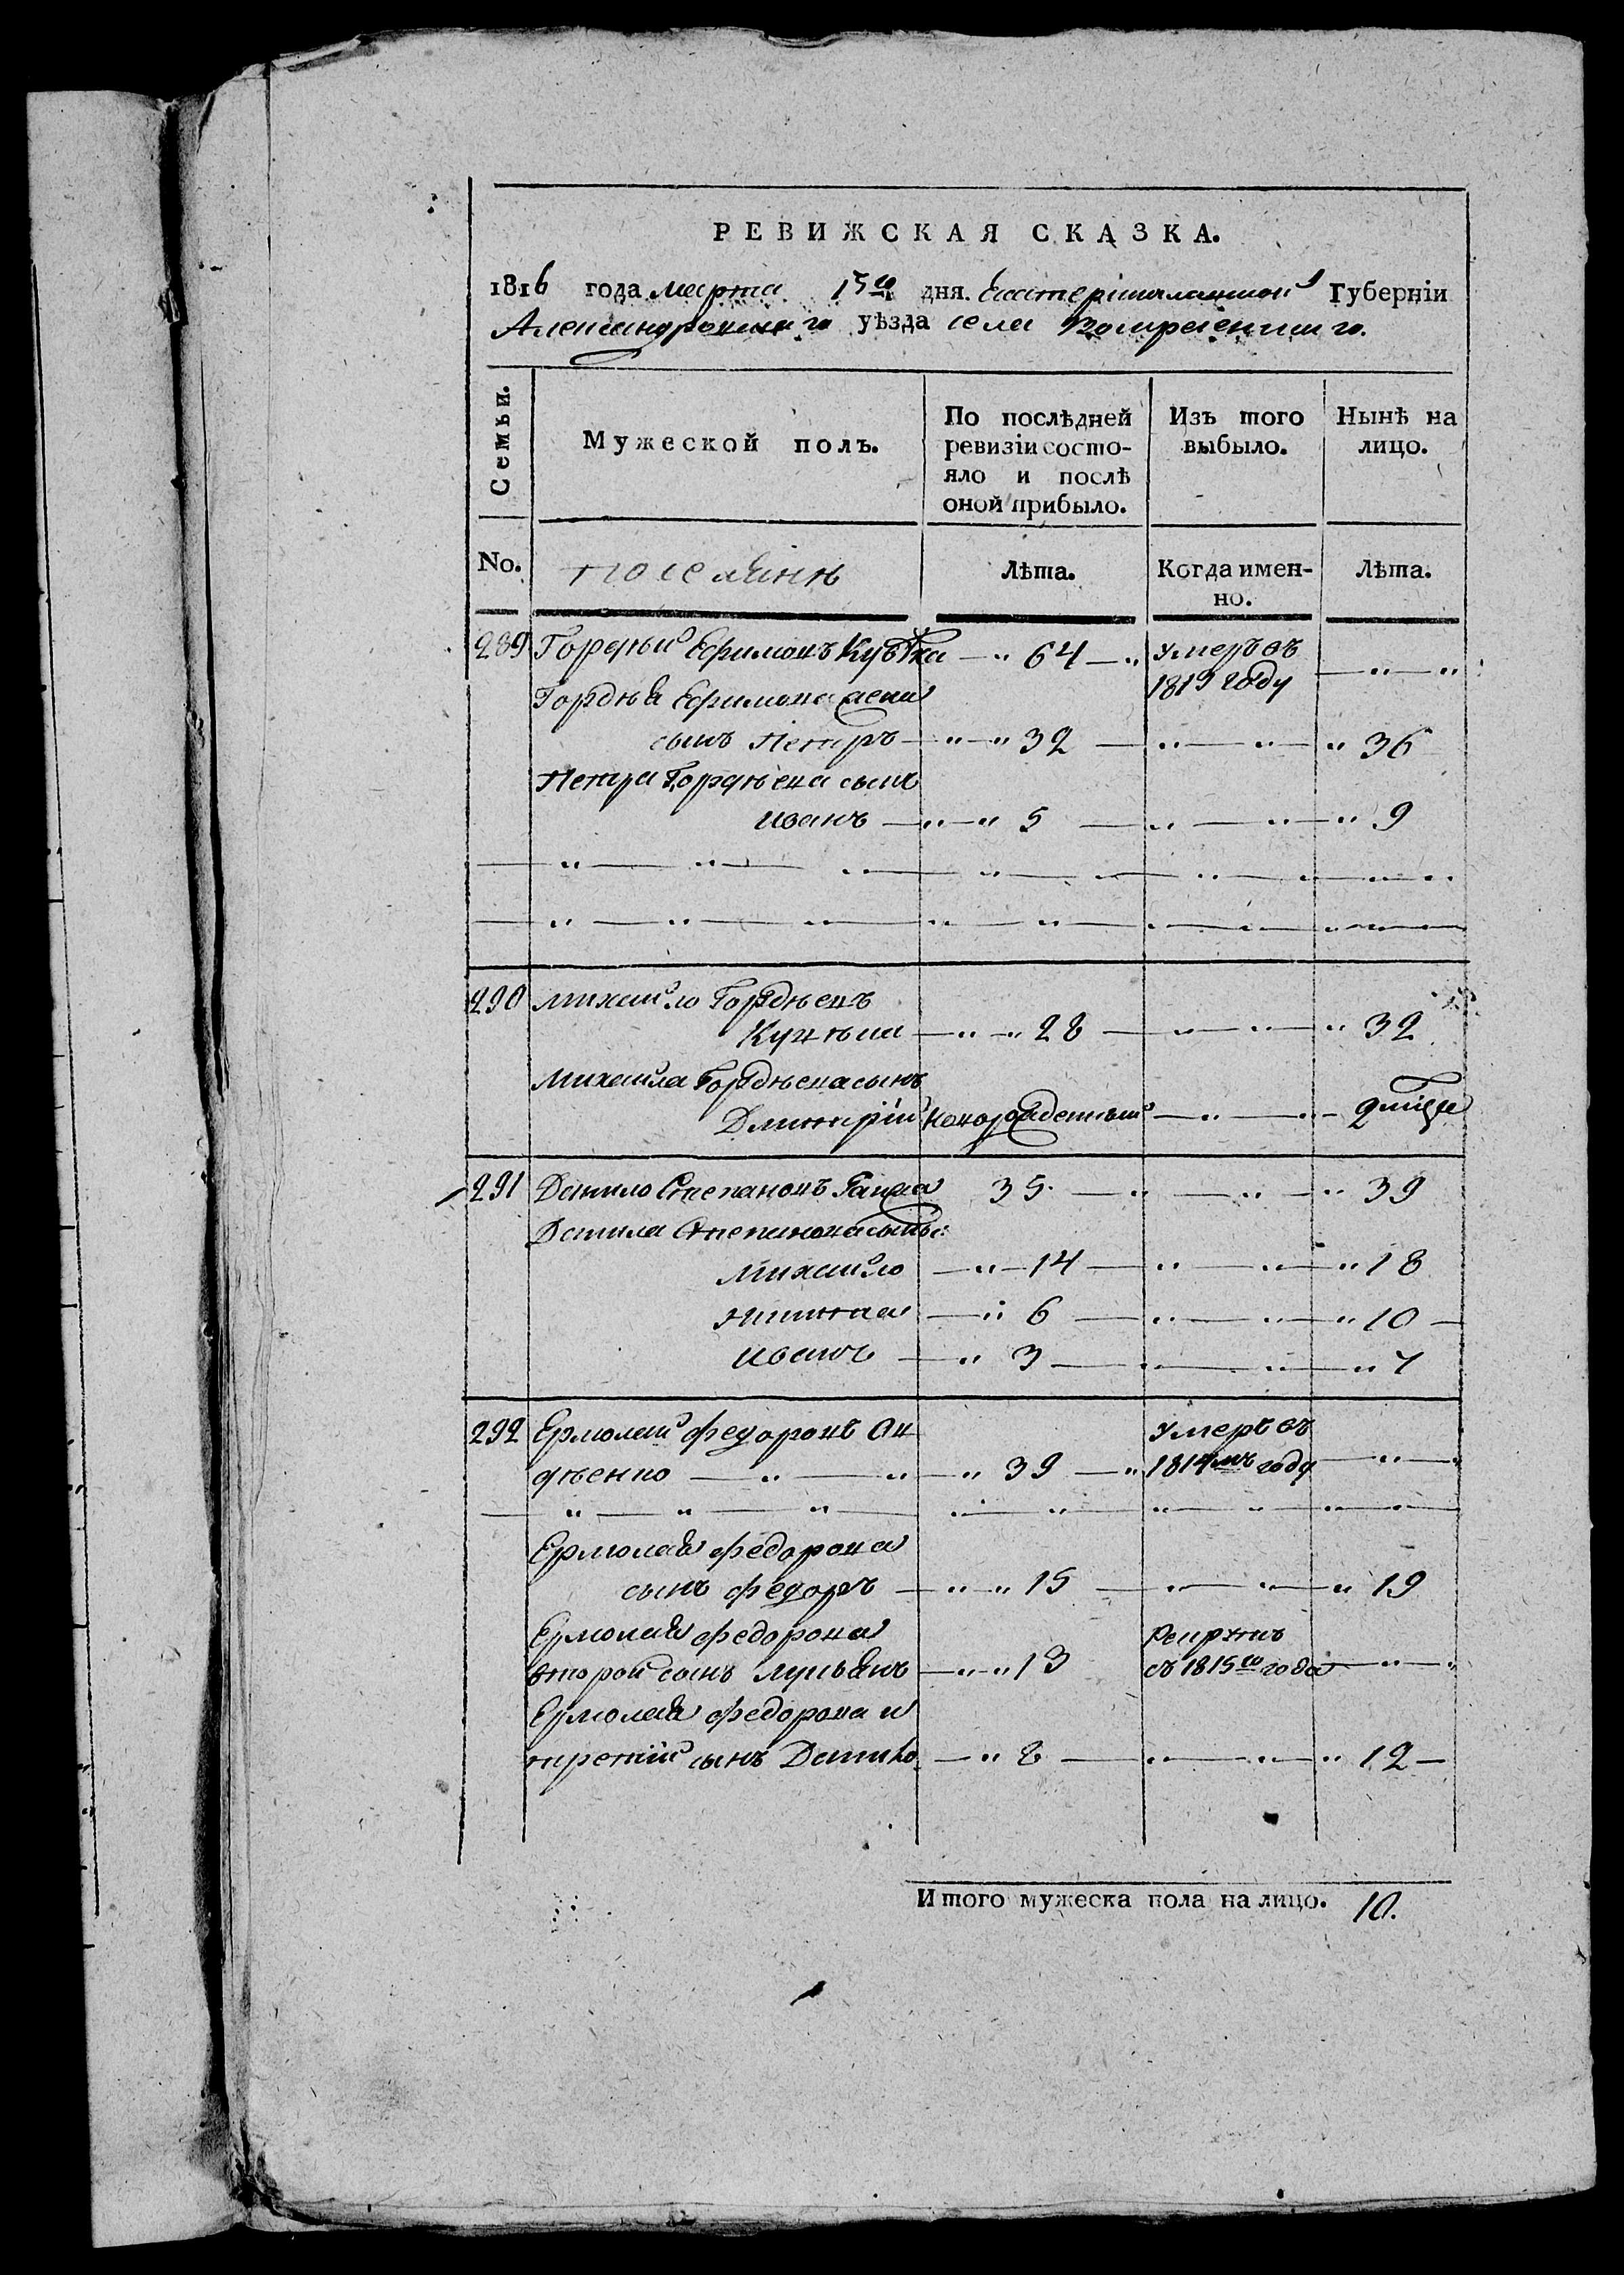 РЕВИЖСКАЯ СКАЗКА.
1816 года марта 15го дня Екатеринославской Губерніи
Александровскаго уѣзда села Воскресенскаго.
Семьи.
Мужеской полъ.
По послѣдней ревизіи состо-
яло и послѣ
оной прибыло.
Изъ того
выбыло.
Нынѣ на
лицо.
No.
поселянѣ
Лѣта.
Когда имен-
но.
Лѣта.
289 Гордѣй Ефимовъ 64 умеръ въ
1813 году
Гордѣя Ефимова
сынъ Петръ 32 36
Петра Гордѣева сынъ
Иванъ 5 9
290 Михайло Гордѣевъ
28 32
Михайла Гордѣева сынъ
Дмитрій новорожденный
291 Данило Степановъ 35 39
Данила Степанова сыновья:
Михайло 14 18
Никита 6 10
Иванъ 3 7
292 Ермолай Федоровъ Ав
дѣенко 39 Умеръ въ
1814мъ году
Ермолая Федорова
сынъ Федоръ 15 19
Ермолая Федорова
второй сынъ Лукьянъ 13 Рекрутъ
съ 1815го года
Ермолая Федорова
третій сынъ Данило 8 12
Итого мужеска пола на лицо. 10.